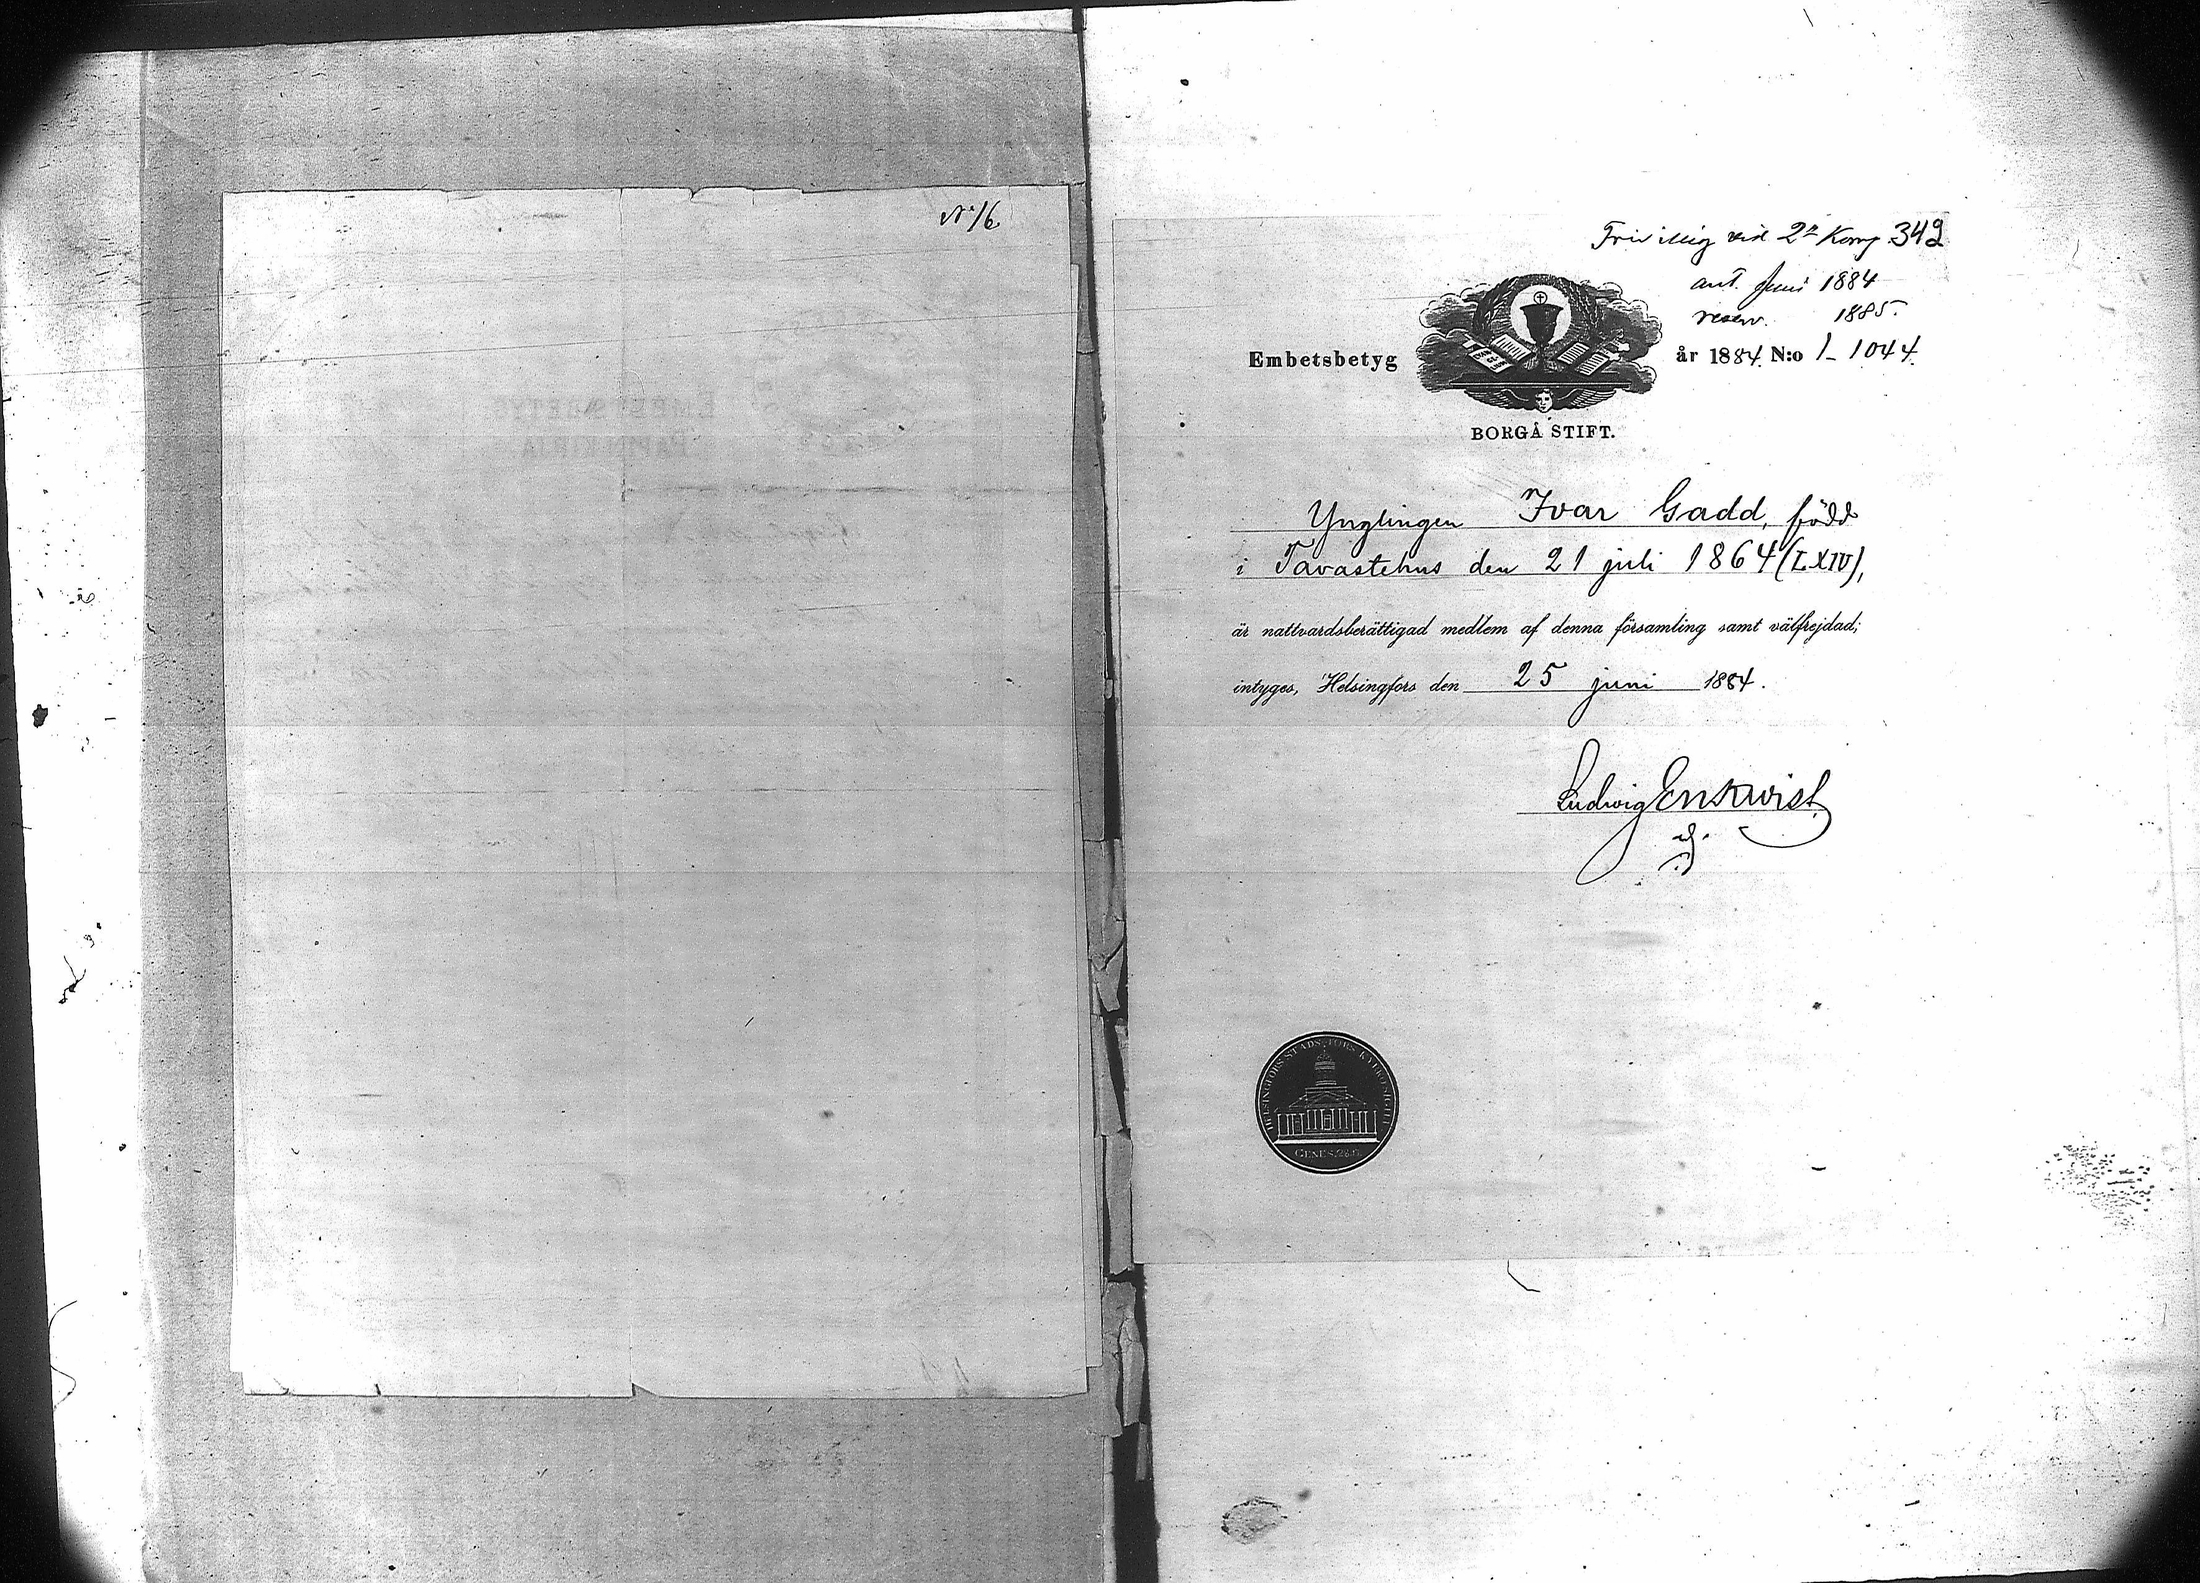 N:16
Frivillig vid 2a Komp. 342
ant. Juni 1884
reserv. 1885.
Embetsbetyg
år 1884. N:o 1_ 1044.
BORGÅ STIFT.
Ynglingen Ivar Gadd, född
i Tavastehus den 21 juli 1864 (LXIV),
är nattvardsberättigad medlem af denna församling samt välfrejdad;
intyges, Helsingfors den 25 juni 1884.
Ludwig Enkvist
HELSINGFORS STADS
GENES. 28.